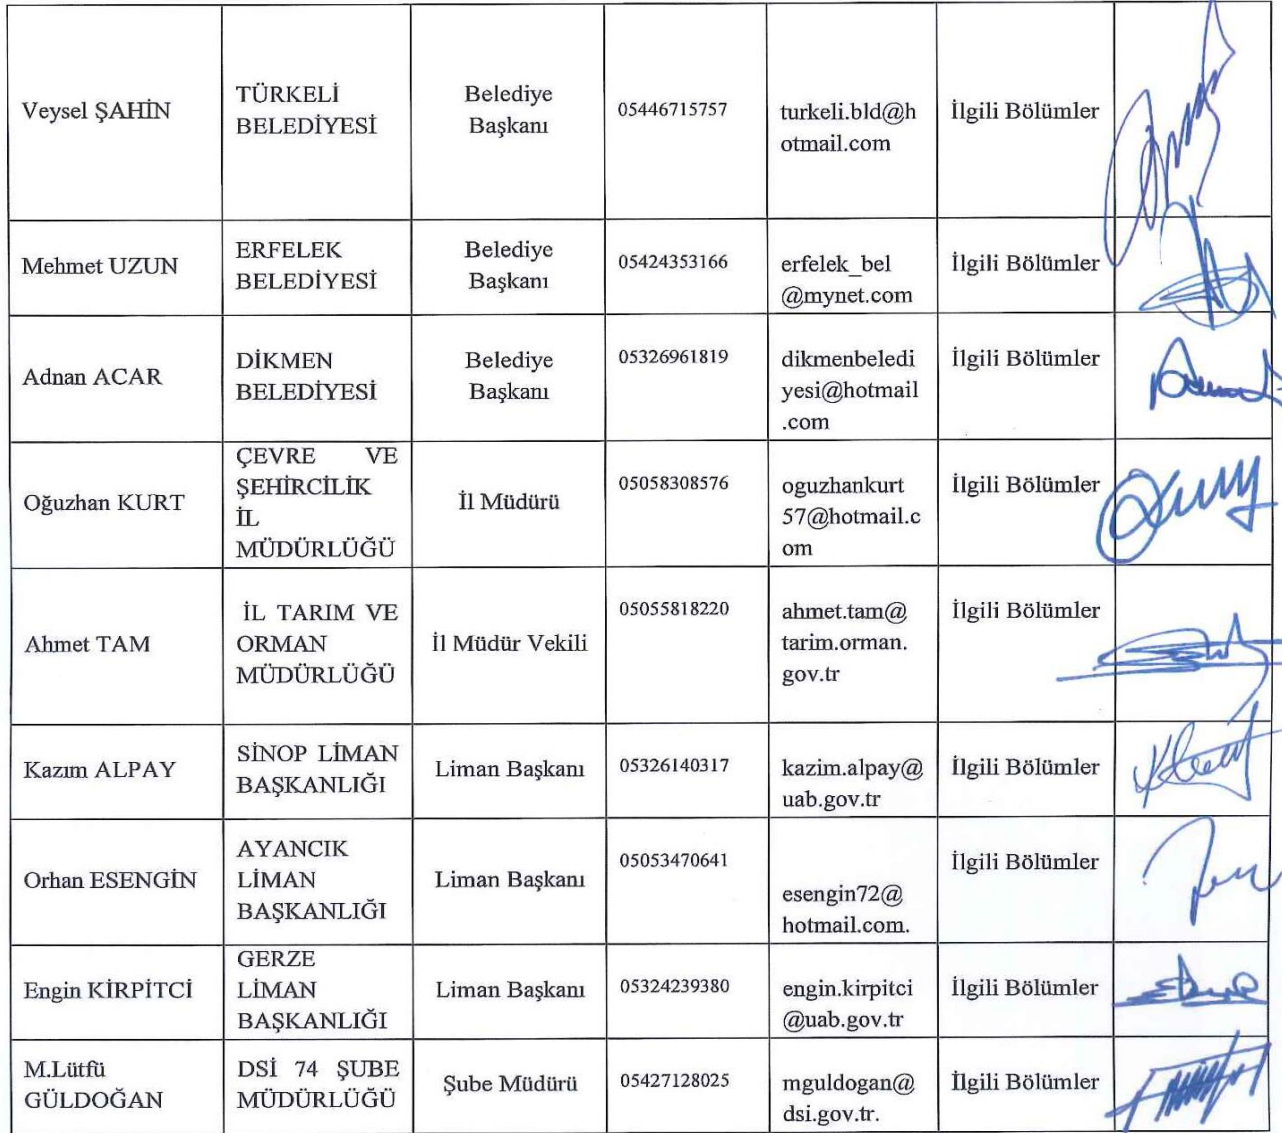 Veysel ŞAHİN
TÜRKELİ
BELEDİYESİ
Belediye
Başkanı
05446715757
turkeli.bld@h
otmail.com
İlgili Bölümler
Mehmet UZUN
ERFELEK
BELEDİYESİ
Belediye
Başkanı
05424353166
erfelek_bel
@mynet.com
İlgili Bölümler
Adnan ACAR
DİKMEN
BELEDİYESİ
Belediye
Başkanı
05326961819
dikmenbeledi
yesi@hotmail
.com
İlgili Bölümler
Oğuzhan KURT
ÇEVRE VE
ŞEHİRCİLİK
İL
MÜDÜRLÜĞÜ
İl Müdürü
05058308576
oguzhankurt
57@hotmail.c
om
İlgili Bölümler
Ahmet TAM
İL TARIM VE
ORMAN
MÜDÜRLÜĞÜ
İl Müdür Vekili
05055818220
ahmet.tam@
tarim.orman.
gov.tr
İlgili Bölümler
Kazım ALPAY
SİNOP LİMAN
BAŞKANLIĞI
Liman Başkanı
05326140317
kazim.alpay@
uab.gov.tr
İlgili Bölümler
Orhan ESENGİN
AYANCIK
LİMAN
BAŞKANLIĞI
Liman Başkanı
05053470641
esengin72@
hotmail.com.
İlgili Bölümler
Engin KİRPİTCİ
GERZE
LİMAN
BAŞKANLIĞI
Liman Başkanı
05324239380
engin.kirpitci
@uab.gov.tr
İlgili Bölümler
M.Lütfü
GÜLDOĞAN
DSİ 74 ŞUBE
MÜDÜRLÜĞÜ
Şube Müdürü
05427128025
mguldogan@
dsi.gov.tr.
İlgili Bölümler